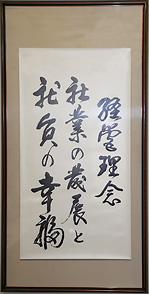 経営理念
社業の発展と
社員の幸福